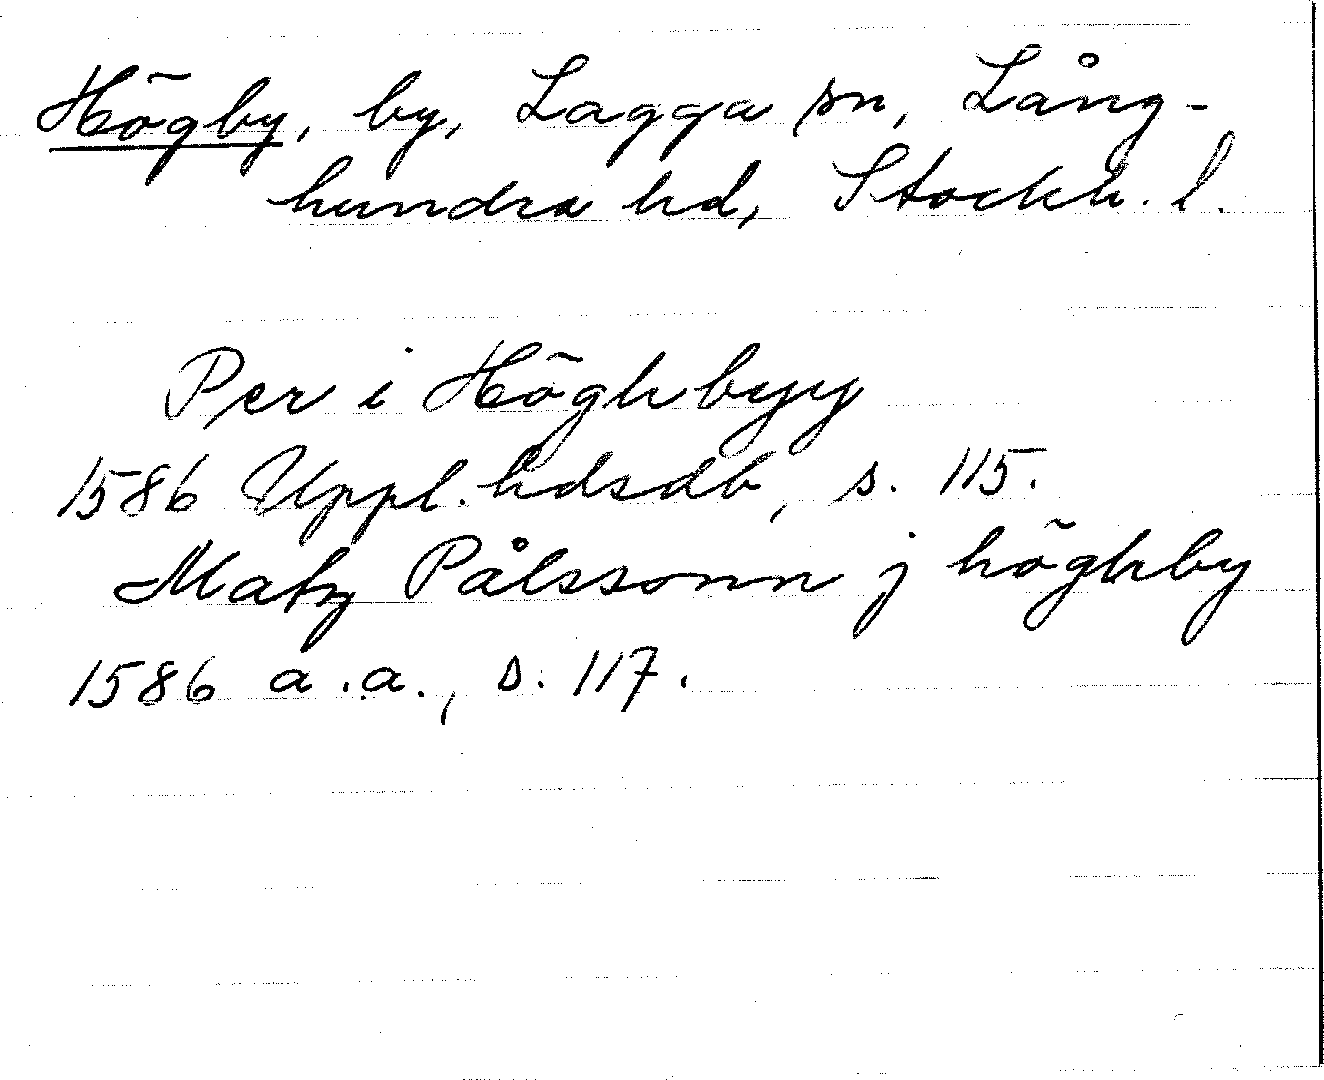 Högby, by, Lagga sn, Lång-
hundra hd, Stockh. l.
Per i Höghbyy
1586 Uppl. hdsdb, s. 115.
Matz Pålssonn j höghby
1586 a.a., s. 117.